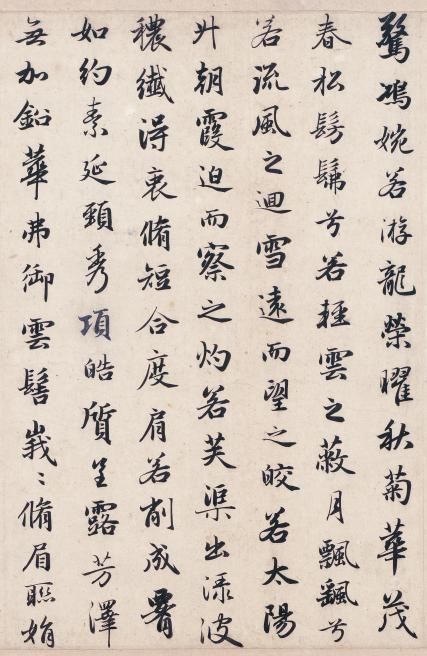 驚鴻婉若游龍榮曜秋菊華茂
春松髣髴兮若輕雲之蔽月飄飖兮
若流風之迴雪遠而望之皎若太陽
升朝霞迫而察之灼若芙渠出渌波
穠纖得衷脩短合度肩若削成腰
如約素延頸秀項皓質呈露芳澤
無加鉛華弗御雲髻峩〻脩眉聯娟